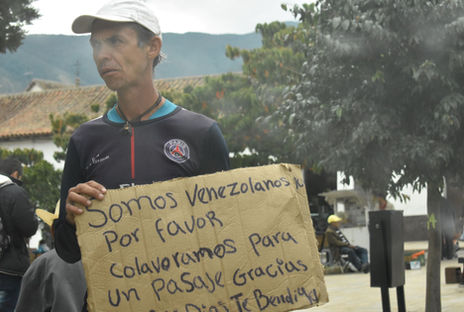 SOMOS VENEZOLANOS
POR FAVOR
COLAVORAMOS PARA
UN PASAJE GRACIAS
Dios Te Bendiga
PARIS